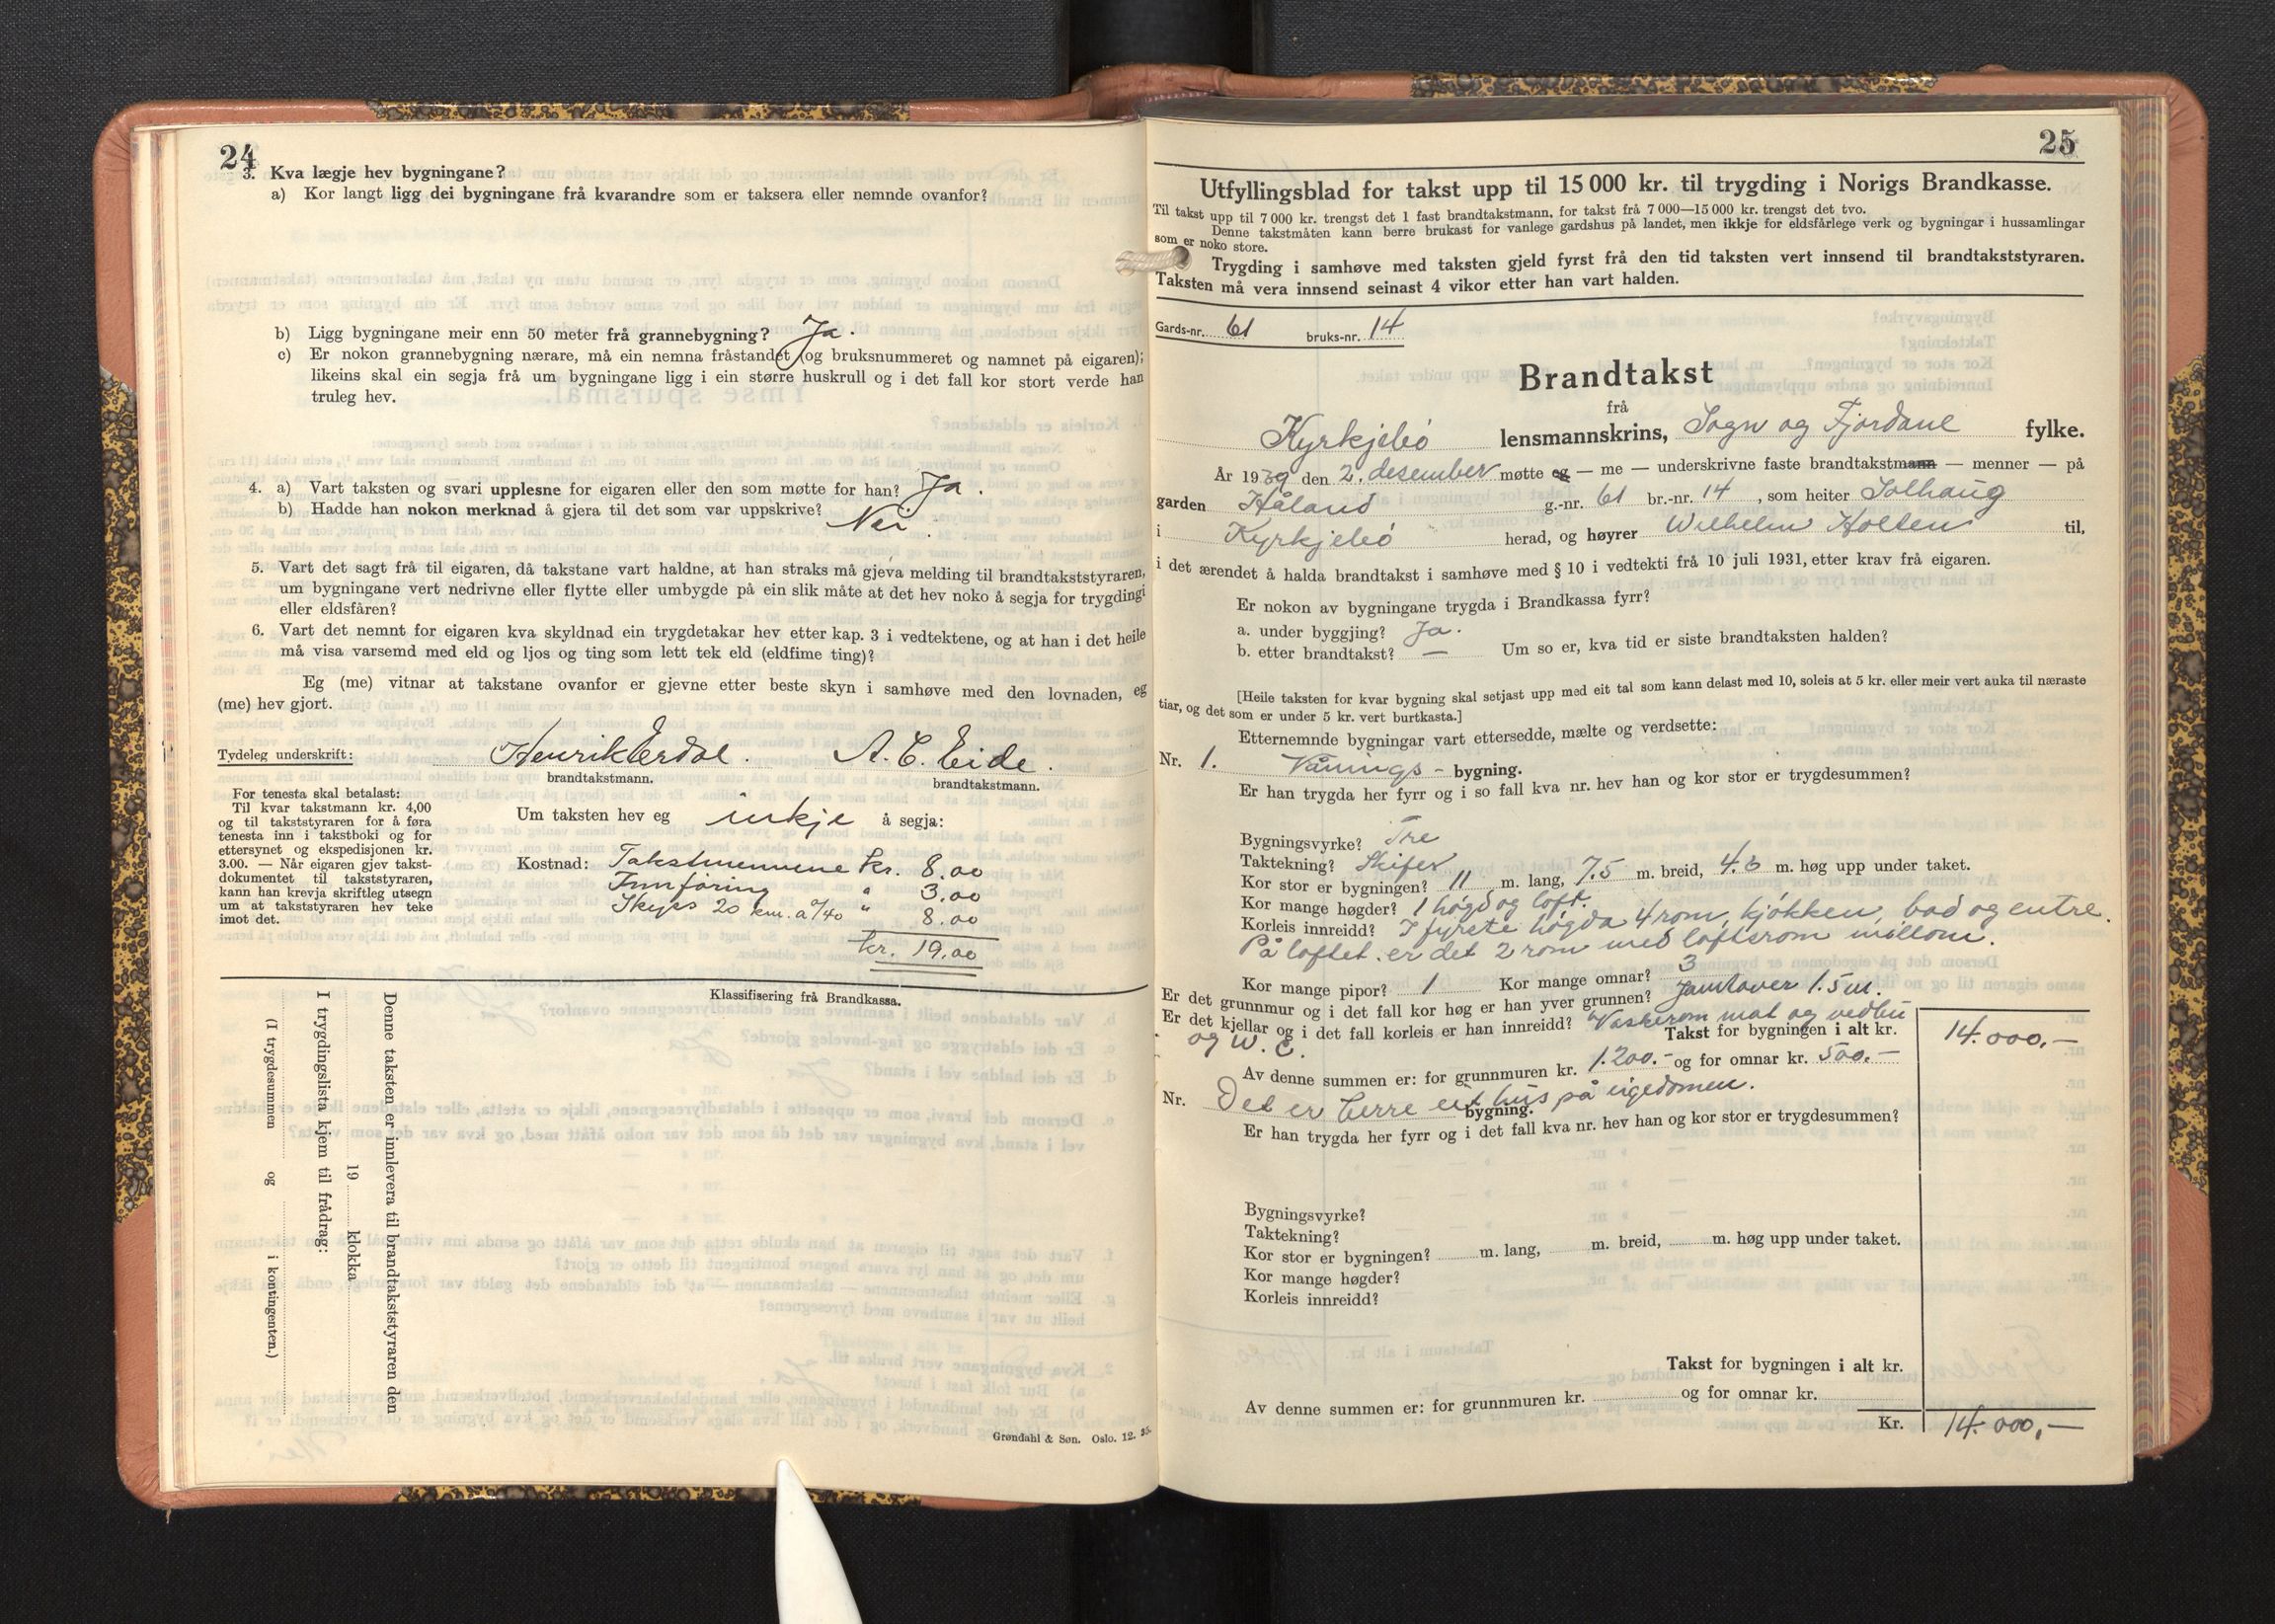 24
3. Kva lægje hev bygningane?
a) Kor langt ligg dei bygningane frå kvarandre som er taksera eller nemnde ovanfor?
b) Ligg bygningane meir enn 50 meter frå grannebygning? Ja.
c) Er nokon grannebygning nærare, må ein nemna fråstandet (og bruksnummeret og namnet på eigaren);
likeins skal ein segja frå um bygningane ligg i ein større huskrull og i det fall kor stort verde han
truleg hev.
4. a) Vart taksten og svari upplesne for eigaren eller den som møtte for han? Ja.
b) Hadde han nokon merknad å gjera til det som var uppskrive? Nei.
5. Vart det sagt frå til eigaren, då takstane vart haldne, at han straks må gjeva melding til brandtakststyraren,
um bygningane vert nedrivne eller flytte eller umbygde på ein slik måte at det hev noko å segja for trygdingi
eller eldsfåren?
6. Vart det nemnt for eigaren kva skyldnad ein trygdetakar hev etter kap. 3 i vedtektene, og at han i det heile
må visa varsemd med eld og ljos og ting som lett tek eld (eldfime ting)?
Eg (me) vitnar at takstane ovanfor er gjevne etter beste skyn i samhøve med den lovnaden, eg
(me) hev gjort.
Tydeleg underskrift: Henrik Erdal. A. C. Eide.
brandtakstmann. brandtakstmann.
For tenesta skal betalast:
Til kvar takstmann kr. 4,00
og til takststyraren for å føra
tenesta inn i takstboki og for
ettersynet og ekspedisjonen kr.
3.00. — Når eigaren gjev takst-
dokumentet til takststyraren,
kann han krevja skriftleg utsegn
um at takststyraren hev teke
imot det.
Um taksten hev eg inkje å segja:
Kostnad: Takstmennene kr. 8.00
Innføring " 3.00
Skyss 20 km. a 0/40 " 8.00
kr. 19.00
Klassifisering frå Brandkassa.
Denne taksten er innlevera til brandtakststyraren den
19 klokka
I trygdingslista kjem til frådrag:
(I trygdesummen og i kontingenten.)
Grøndahl & Søn. Oslo. 12. 35.
25
Utfyllingsblad for takst upp til 15 000 kr. til trygding i Norigs Brandkasse.
Til takst upp til 7 000 kr. trengst det 1 fast brandtakstmann, for takst frå 7 000—15 000 kr. trengst det tvo.
Denne takstmåten kann berre brukast for vanlege gardshus på landet, men ikkje for eldsfårlege verk og bygningar i hussamlingar
som er noko store.
Trygding i samhøve med taksten gjeld fyrst frå den tid taksten vert innsend til brandtakststyraren.
Taksten må vera innsend seinast 4 vikor etter han vart halden.
Gards-nr. 61 bruks-nr. 14
Brandtakst
frå
Kyrkjebø lensmannskrins, Sogn og Fjordane fylke.
År 1939 den 2. desember møtte eg — me — underskrivne faste brandtakstmann — menner — på
garden Håland g.-nr. 61 br.-nr. 14, som heiter Solhaug
i Kyrkjebø herad, og høyrer Wilhelm Holten til,
i det ærendet å halda brandtakst i samhøve med § 10 i vedtekti frå 10 juli 1931, etter krav frå eigaren.
Er nokon av bygningane trygda i Brandkassa fyrr?
a. under byggjing? Ja.
b. etter brandtakst? — Um so er, kva tid er siste brandtaksten halden?
[Heile taksten for kvar bygning skal setjast upp med eit tal som kann delast med 10, soleis at 5 kr. eller meir vert auka til næraste
tiar, og det som er under 5 kr. vert burtkasta.]
Etternemnde bygningar vart ettersedde, mælte og verdsette:
Nr. 1. Vånings - bygning.
Er han trygda her fyrr og i so fall kva nr. hev han og kor stor er trygdesummen?
Bygningsvyrke? Tre
Taktekning? Skifer
Kor stor er bygningen? 11 m. lang, 7.5 m. breid, 4.3 m. høg upp under taket.
Kor mange høgder? 1 høgd og loft.
Korleis innreidd? I fyrste høgda 4 rom, kjøkken, bad og entre.
På loftet er det 2 rom med loftsrom millom.
Kor mange pipor? 1 Kor mange omnar? 3
Er det grunnmur og i det fall kor høg er han yver grunnen? Jamtover 1.5 m.
Er det kjellar og i det fall korleis er han innreidd? Vaskerom mat og vedbu
og W. C. Takst for bygningen i alt kr. 14.000.—
Av denne summen er: for grunnmuren kr. 1.200.- og for omnar kr. 500.—
Nr. Det er berre eit hus på eigedomen.
bygning.
Er han trygda her fyrr og i det fall kva nr. hev han og kor stor er trygdesummen?
Bygningsvyrke?
Taktekning?
Kor stor er bygningen? m. lang, m. breid, m. høg upp under taket.
Kor mange høgder?
Korleis innreidd?
Takst for bygningen i alt kr.
Av denne summen er: for grunnmuren kr. og for omnar kr.
Kr. 14.000,—